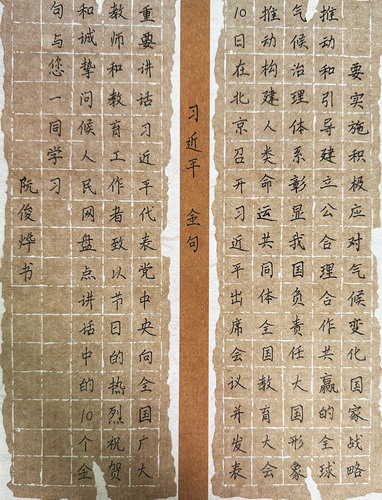 要实施积极应对气候变化国家战略
推动和引导建立公合理合作共赢的全球
气候治理体系彰显我国负责任大国形象
推动构建人类命运共同体全国教育大会
10日在北京召开习近平出席会议并发表
习近平 金句
重要讲话习近平代表党中央向全国广大
教师和教育工作者致以节日的热烈祝贺
和诚挚问候人民网盘点讲话中的10个金
句与您一同学习
阮俊烨书